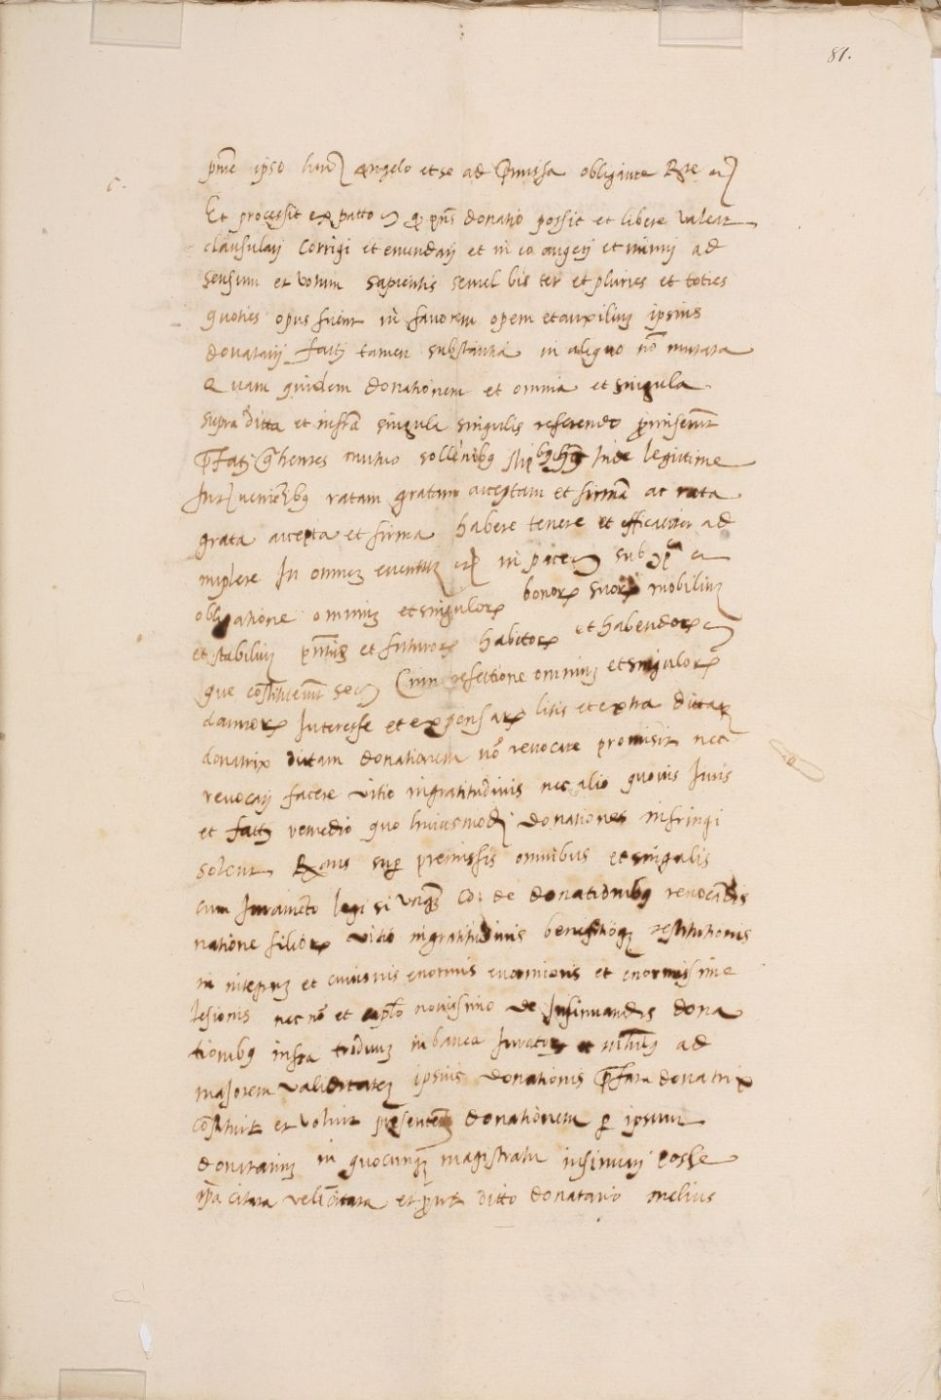 81.
ipso Angelo et se ad p̄missa obligante
Et processit ex patto q̄ p̄ns donatio possit et libere valeat
clausularij corrigi et emendarij et in eo augerj et minuj ad
sensum et votum sapientis semel bis ter et pluries et toties
quoties opus fuerit in favorem opem et auxilium ipsius
donatarij fattj tamen substantia in aliquo nō mutata
Quam quidem donationem et omnia et singula
supra ditta et infrā singula singulis referendo promiserūt
mutuo sollenibꝫ hinc inde legittime
ratam gratam acceptam et firmā ac rata
grata accepta et firma habere tenere et efficaciter ad
implere In omnem eventum in pace sub et
obligatione omniuꝫ et singulorꝫ bonorꝫ suorꝫ mobiliuꝫ
et stabiliuꝫ p̄ntiuꝫ et futurorꝫ habitorꝫ et habendorꝫ
que Cum refectione omniuꝫ et singulorꝫ
damnorꝫ Interesse et expensarꝫ litis et extra ditta
donatrix dittam donationem nō revocare promisit nec
revocarj facere vitio ingratitudinis nec alio quovis Juris
et fattj remedio quo huiusmodj donationes infringi
solent sup̲ premissis omnibus et singulis
cum Juramēto legi si unq̄ȝ Co: de donationibꝫ revocādis
natione filiorꝫ vitio ingratitudinis restitutionis
in integruꝫ et cuiusvis enormis enormioris et enormissime
lesionis nec nō et cap̄lo novissimo de Insinuandis dona
tionibꝫ infra ad
majorem validitateꝫ ipsius donationis p̄fata donatrix
cōstituit et voluit presentem donationem p̲ ipsum
donatariuꝫ in quocunqꝫ magistratu insinuarj posse
ip̄a citata vel nō citata et prout ditto donatario melius